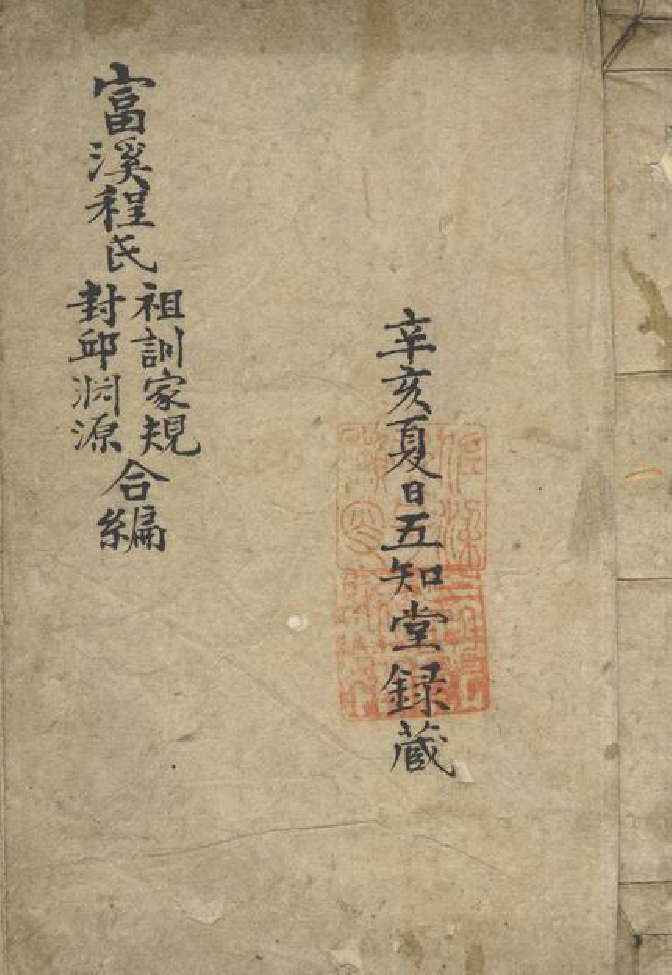 富溪程氏
祖訓家規
封邱渊源
合編
辛亥夏日五知堂録蔵